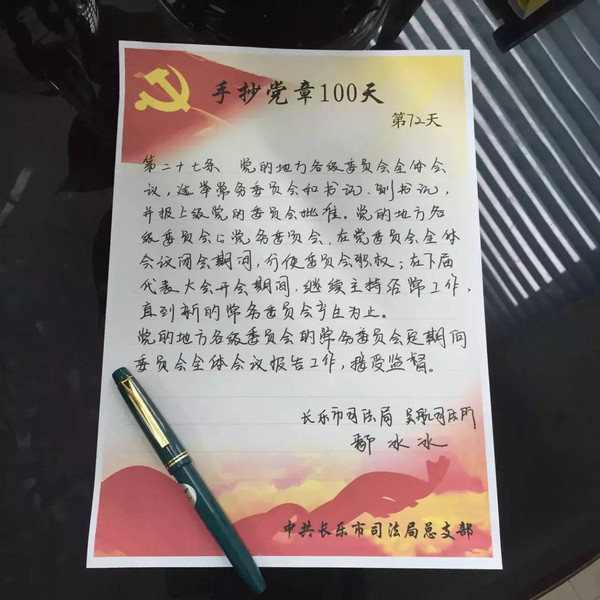 手抄党章100天
第72天
第二十七条 党的地方各级委员会全体会
议,选举常务委员会和书记、副书记,
并报上级党的委员会批准。党的地方各
级委员会常务委员会,在党委员会全体
会议闭会期间,行使委员会职权;在下届
代表大会开会期间,继续主持经常工作,
直到新的常务委员会产生为止。
党的地方各级委员会的常务委员会定期向
委员会全体会议报告工作,接受监督。
长乐市司法局 吴航司法所
鄢冰冰
中共长乐市司法局总支部